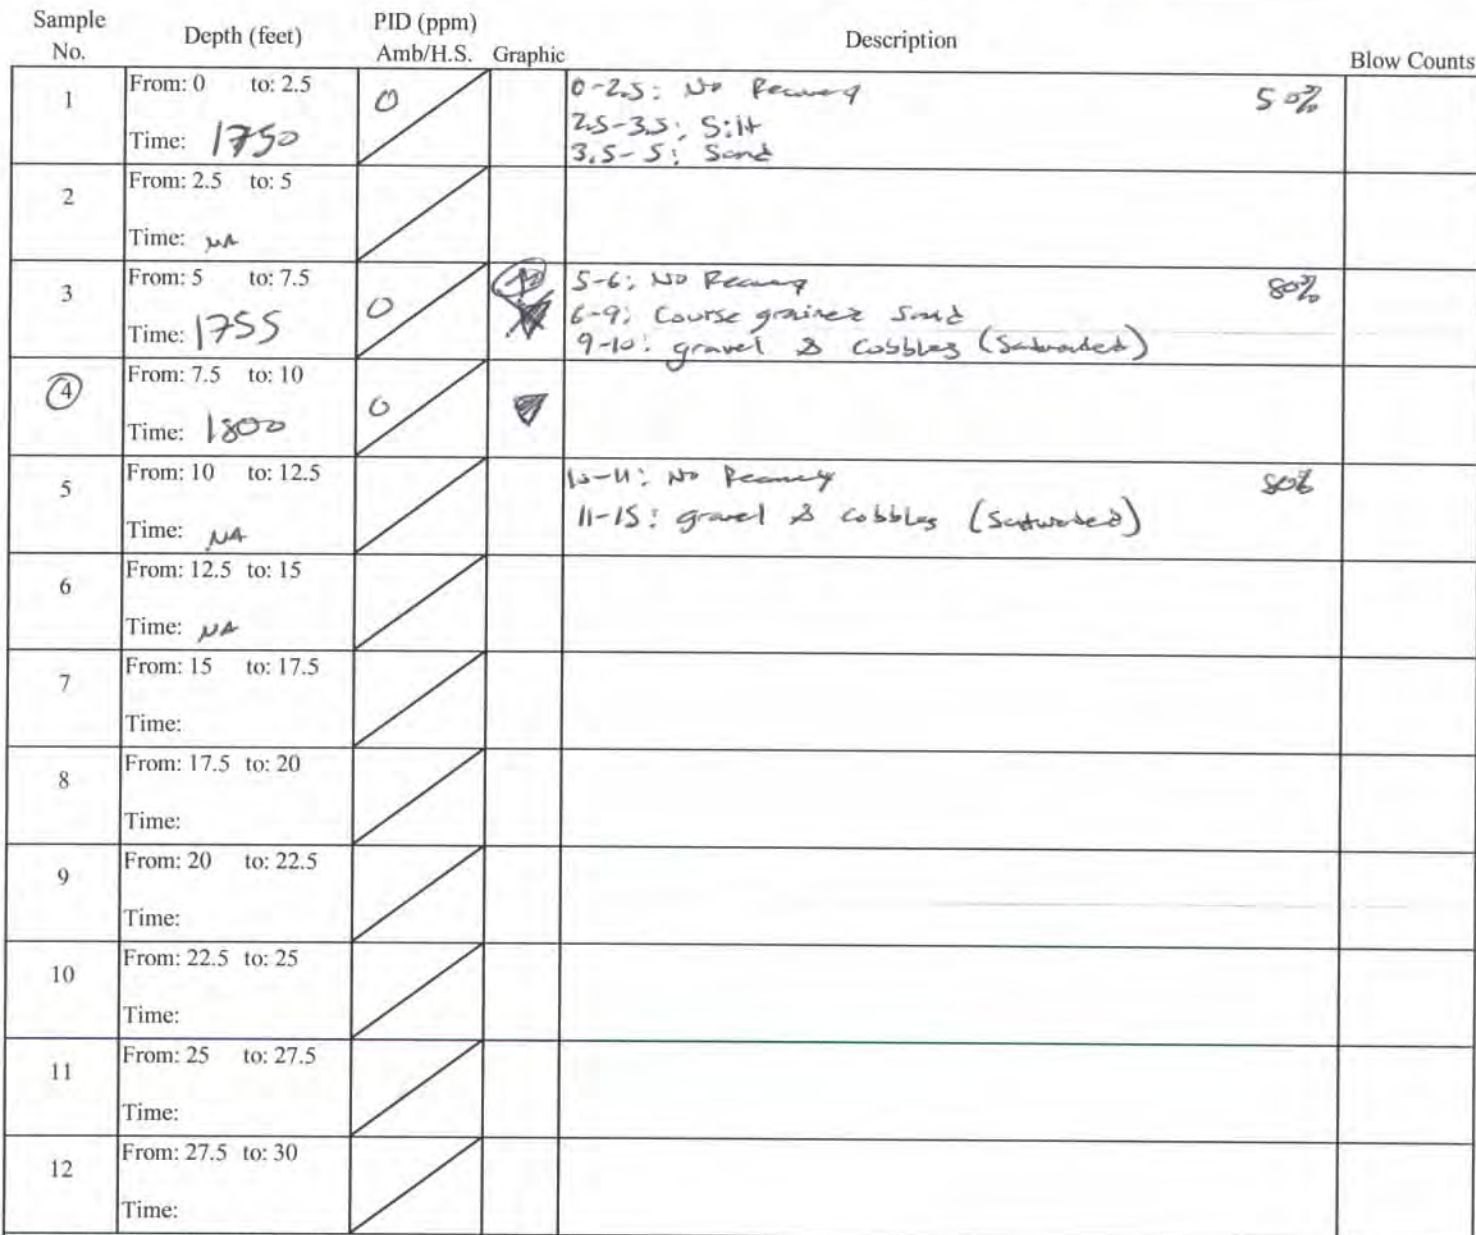 Sample No. Depth (feet) PID (ppm) Amb/H.S. Graphic Description Blow Counts
1 From: 0 to: 2.5 0 0-2.5: No Recovery 50%
Time: 1750 2.5-3.5: Silt
3.5-5: Sand
2 From: 2.5 to: 5
Time: NA
3 From: 5 to: 7.5 0 5-6: No Recovery 80%
Time: 1755 6-9: Course grained Sand
9-10: gravel & cobbles (Saturated)
4 From: 7.5 to: 10 0
Time: 1800
5 From: 10 to: 12.5 10-11: No Recovery 80%
Time: NA 11-15: gravel & cobbles (Saturated)
6 From: 12.5 to: 15
Time: NA
7 From: 15 to: 17.5
Time:
8 From: 17.5 to: 20
Time:
9 From: 20 to: 22.5
Time:
10 From: 22.5 to: 25
Time:
11 From: 25 to: 27.5
Time:
12 From: 27.5 to: 30
Time: